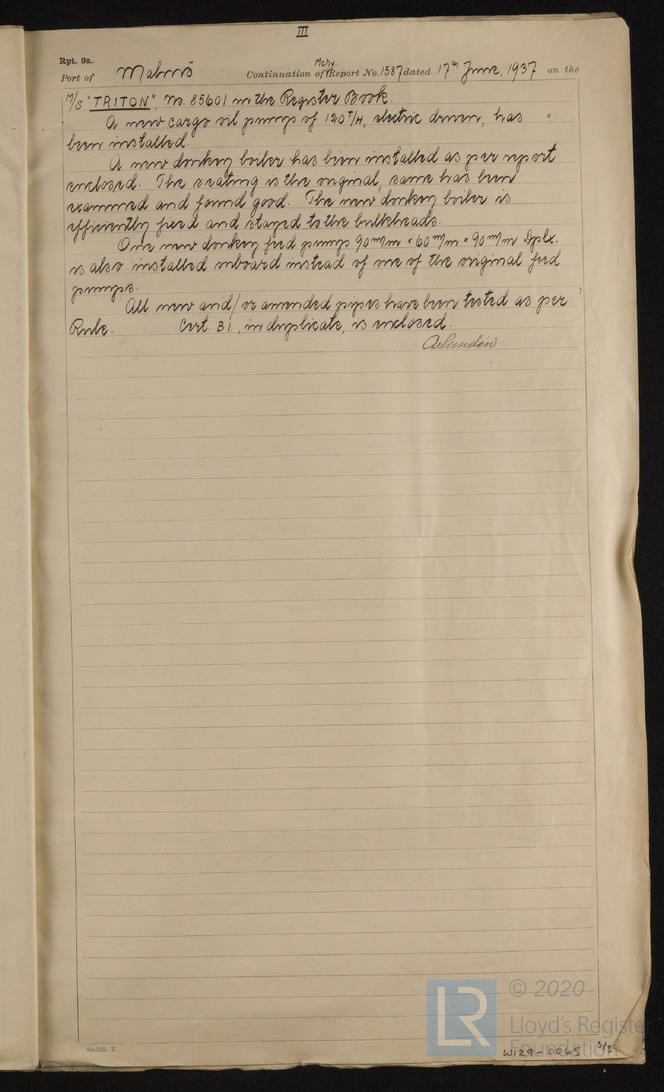 III
Rpt. 9a.
Port of Malmö Continuation of Mchy. Report No. 1587 dated 17th June, 1937 on the
M/S "TRITON", No. 85601 in the Register Book.
A new cargo oil pump of 120 T/H, electric driven, has
been installed.
A new donkey boiler has been installed as per report
enclosed. The seating is the original, same has been
examined and found good. The new donkey boiler is
efficiently fixed and stayed to the bulkheads.
One new donkey feed pump 90 m/m × 60 m/m × 90 m/m Dplx.
is also installed onboard instead of one of the original feed
pumps.
All new and/or amended pipes have been tested as per
Rule. Cert. B1, in duplicate, is enclosed.
© 2020
LR
Lloyd's Register
Foundation
W129-0065 3/3